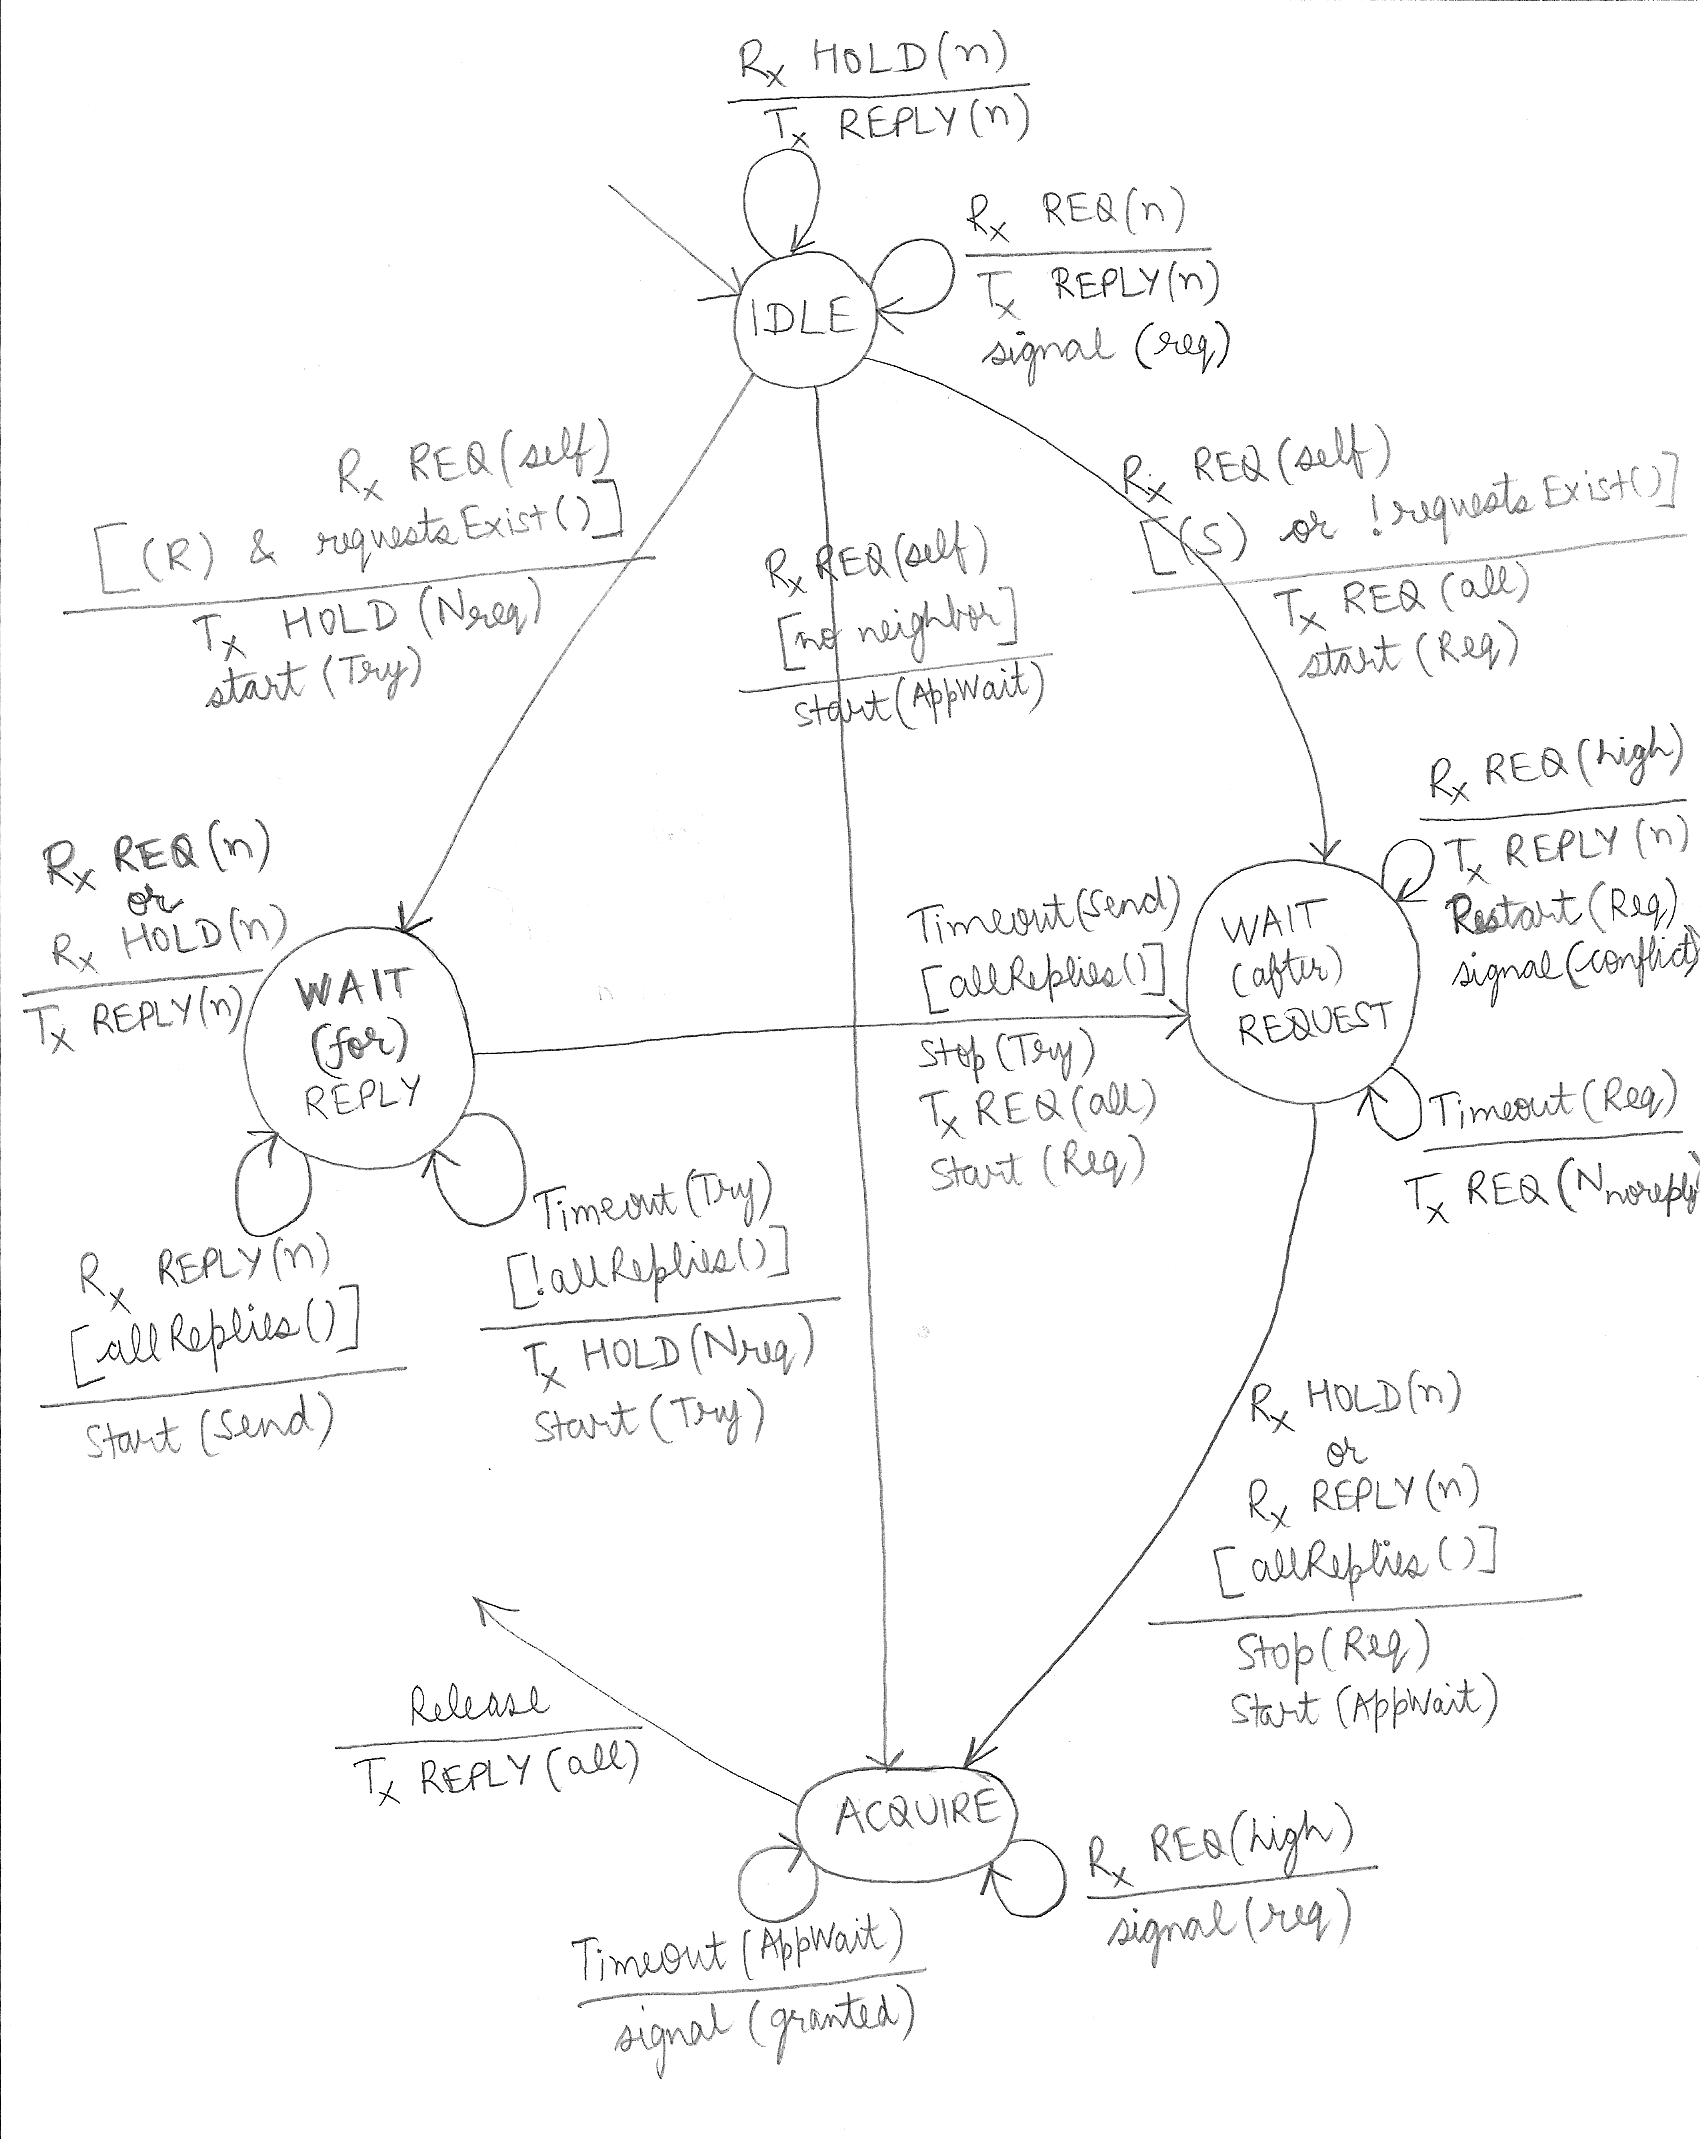 Rx HOLD(n)
Tx REPLY(n)
Rx REQ(n)
Tx REPLY(n)
signal (req)
IDLE
Rx REQ(self)
[(R) & requestsExist()]
Tx HOLD (Nreq)
start (Try)
Rx REQ(self)
[no neighbor]
start(AppWait)
Rx REQ(self)
[(S) or !requestsExist()]
Tx REQ(all)
start (Req)
Rx REQ(high)
Tx REPLY(n)
Restart(Req)
signal(-conflict)
Rx REQ(n)
or
Rx HOLD(n)
Tx REPLY(n)
WAIT
(for)
REPLY
Timeout(Send)
[allReplies()]
Stop(Try)
Tx REQ(all)
Start (Req)
WAIT
(after)
REQUEST
Timeout(Req)
Tx REQ(Nnoreply)
Rx REPLY(n)
[allReplies()]
Start (Send)
Timeout(Try)
[!allReplies()]
Tx HOLD(Nreq)
Start (Try)
Rx HOLD(n)
or
Rx REPLY(n)
[allReplies()]
Stop(Req)
Start (AppWait)
Release
Tx REPLY(all)
ACQUIRE
Rx REQ(high)
signal(req)
Timeout(AppWait)
signal (granted)